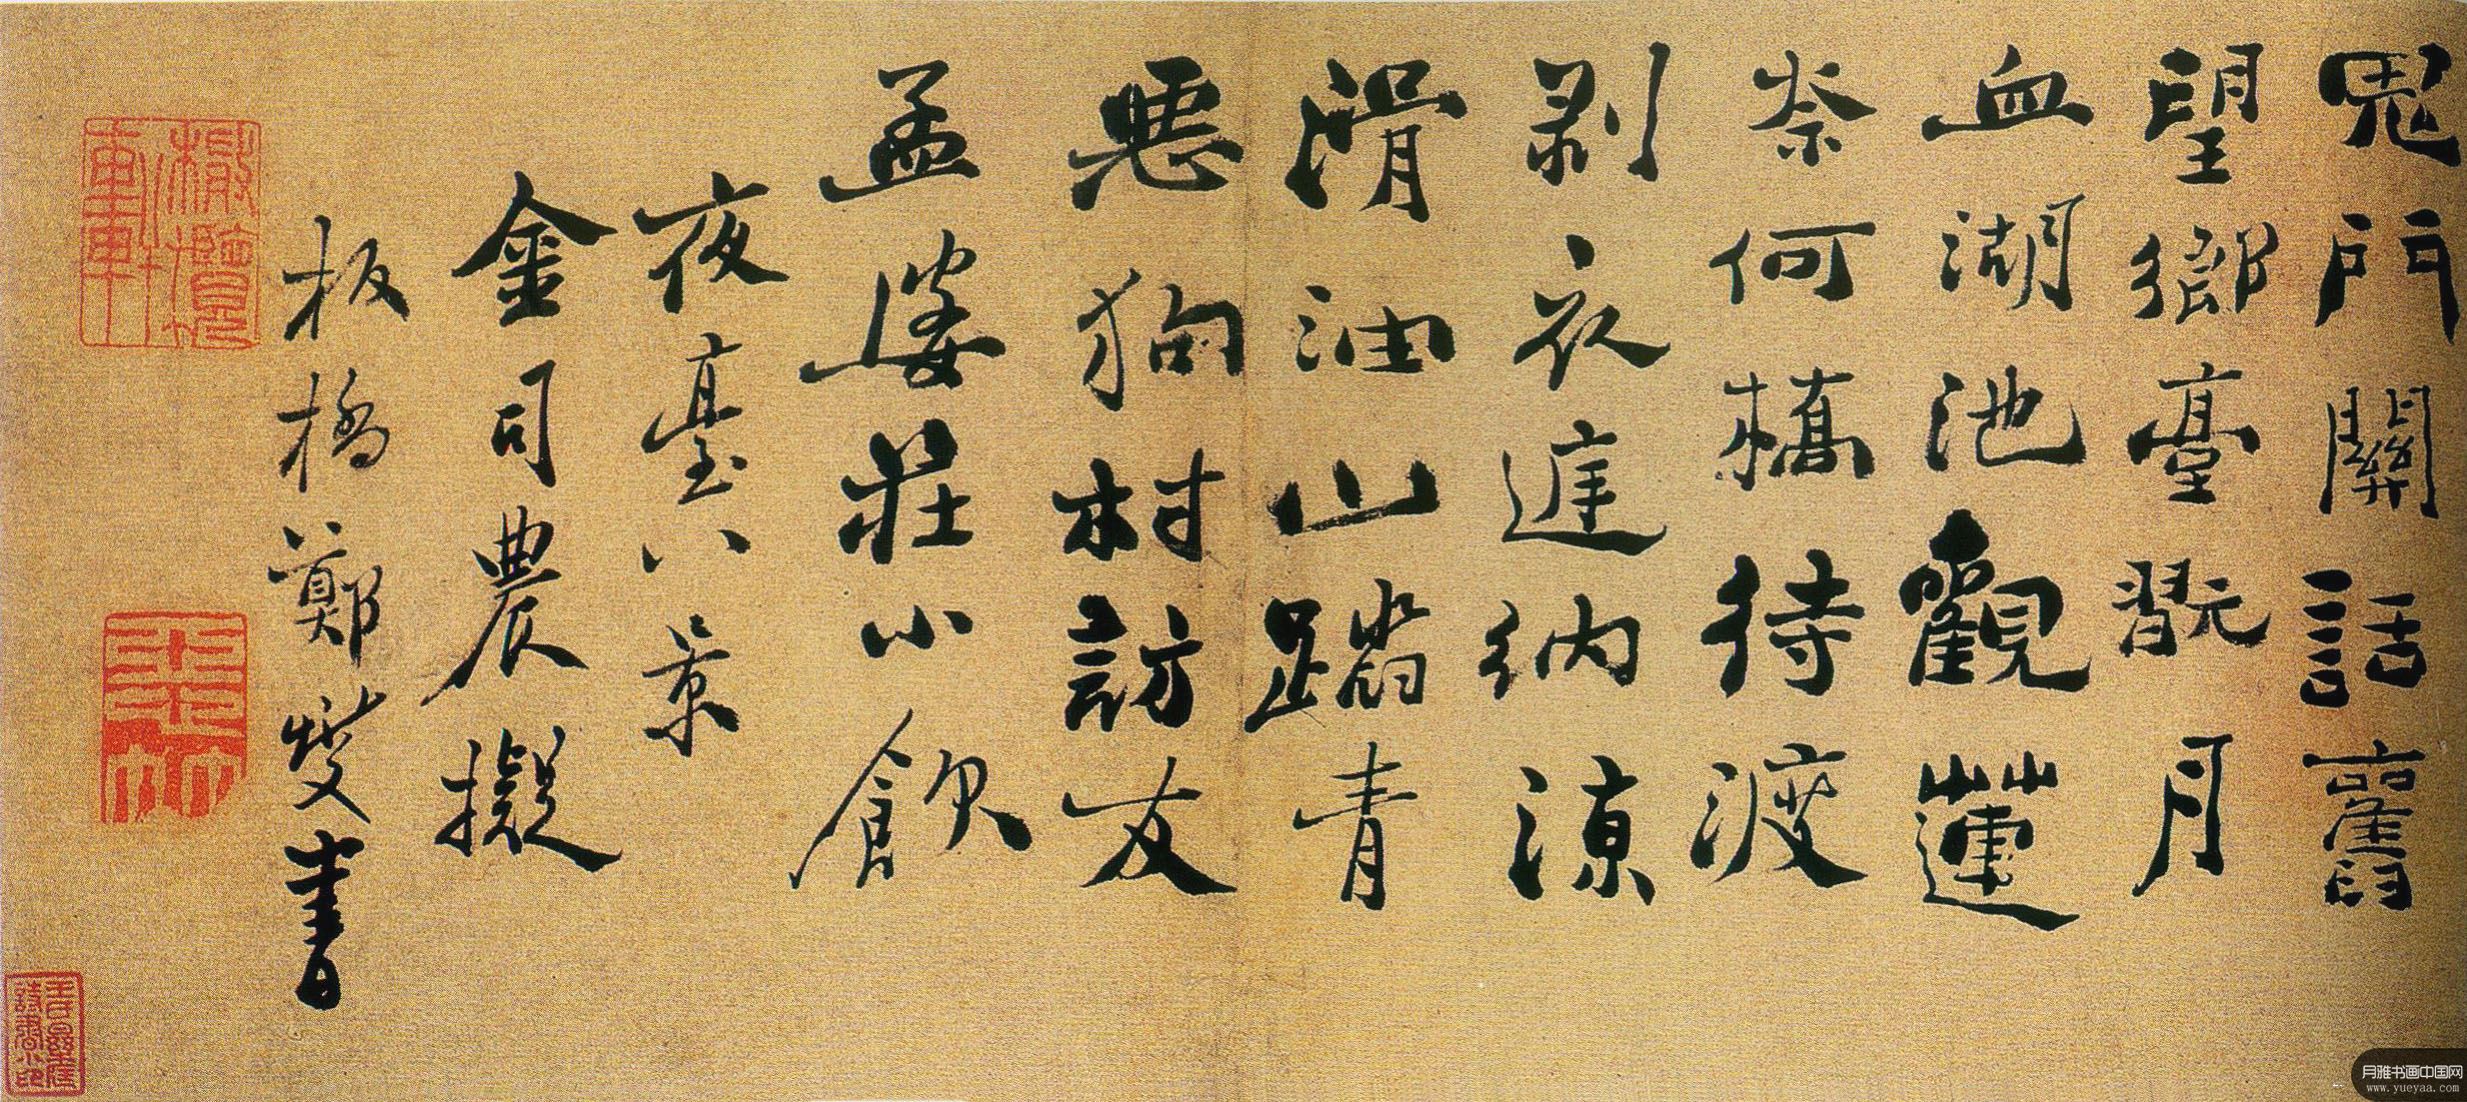 鬼門關話舊
望鄉臺翫月
血湖池觀蓮
柰何橋待渡
剝衣進納涼
滑油山蹋青
惡狗村訪友
孟婆莊小飲
夜臺八景
金司農擬
板橋鄭燮書
月雅书画中国网
www.yueyaa.com